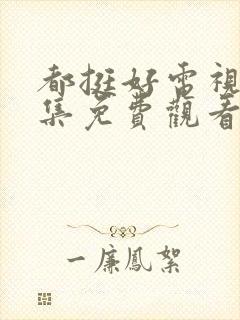 都挺好電視
集免費觀看
一廉鳳絮